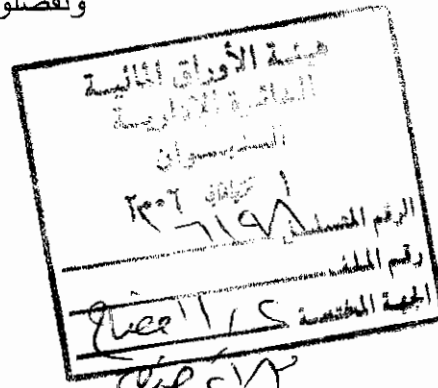 وتفضلو
هيئة الأوراق المالية
الدائرة الإدارية
الديوان
٢٠٠٦
الرقم المتسلسل ٦١٩٨
رقم الملف
الجهة المختصة الافصاح